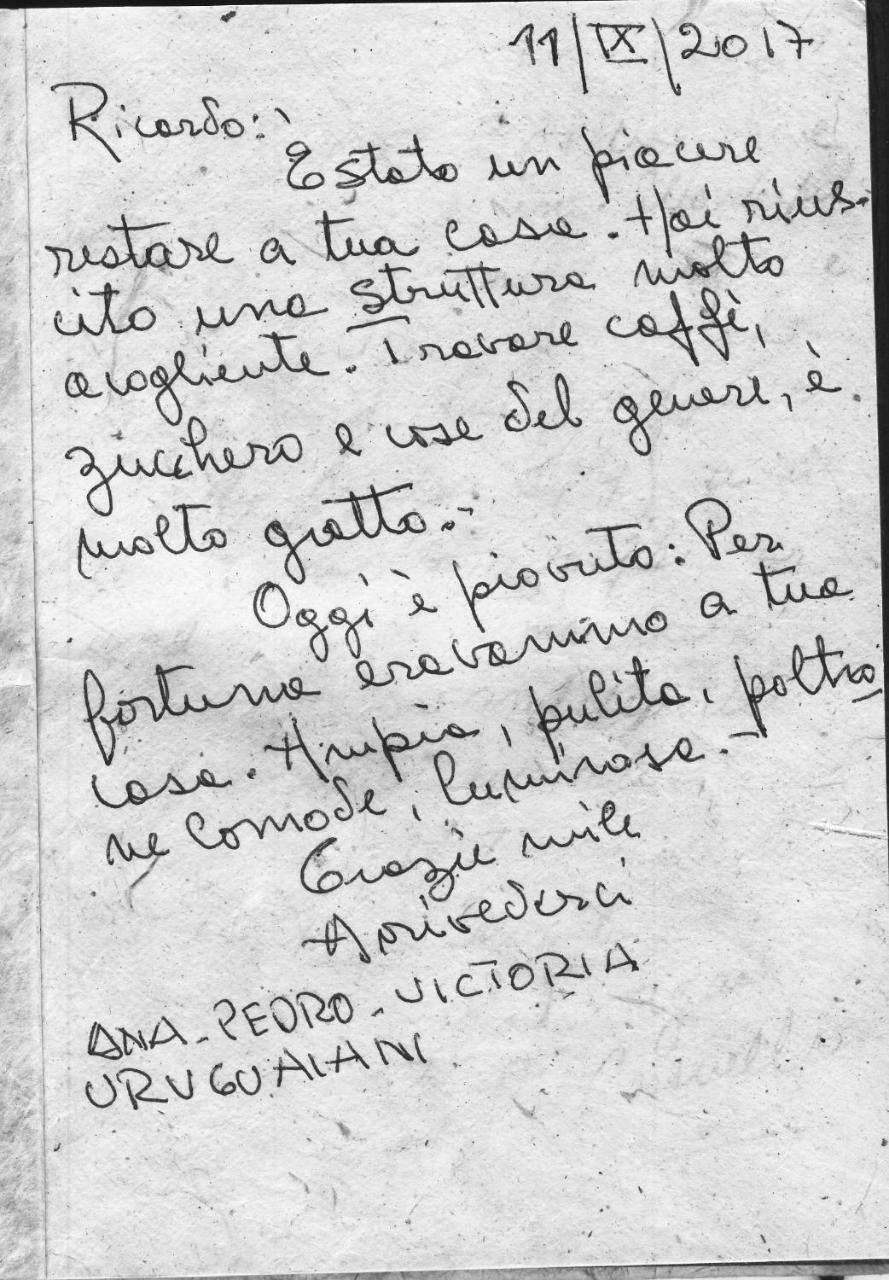 11/IX/2017
Ricardo:
E stato un piacere
restare a tua casa. Hai rius-
cito una struttura molto
acogliente. Travare caffè,
zucchero e cose del genere, è
molto gratto.-
Oggi è piovuto: Per
fortuna eravammo a tua
casa. Ampia, pulita, poltro
ne comode, luminosa.-
Grazie mile
Arrivederci
ANA - PEDRO - VICTORIA
URUGUAIANI